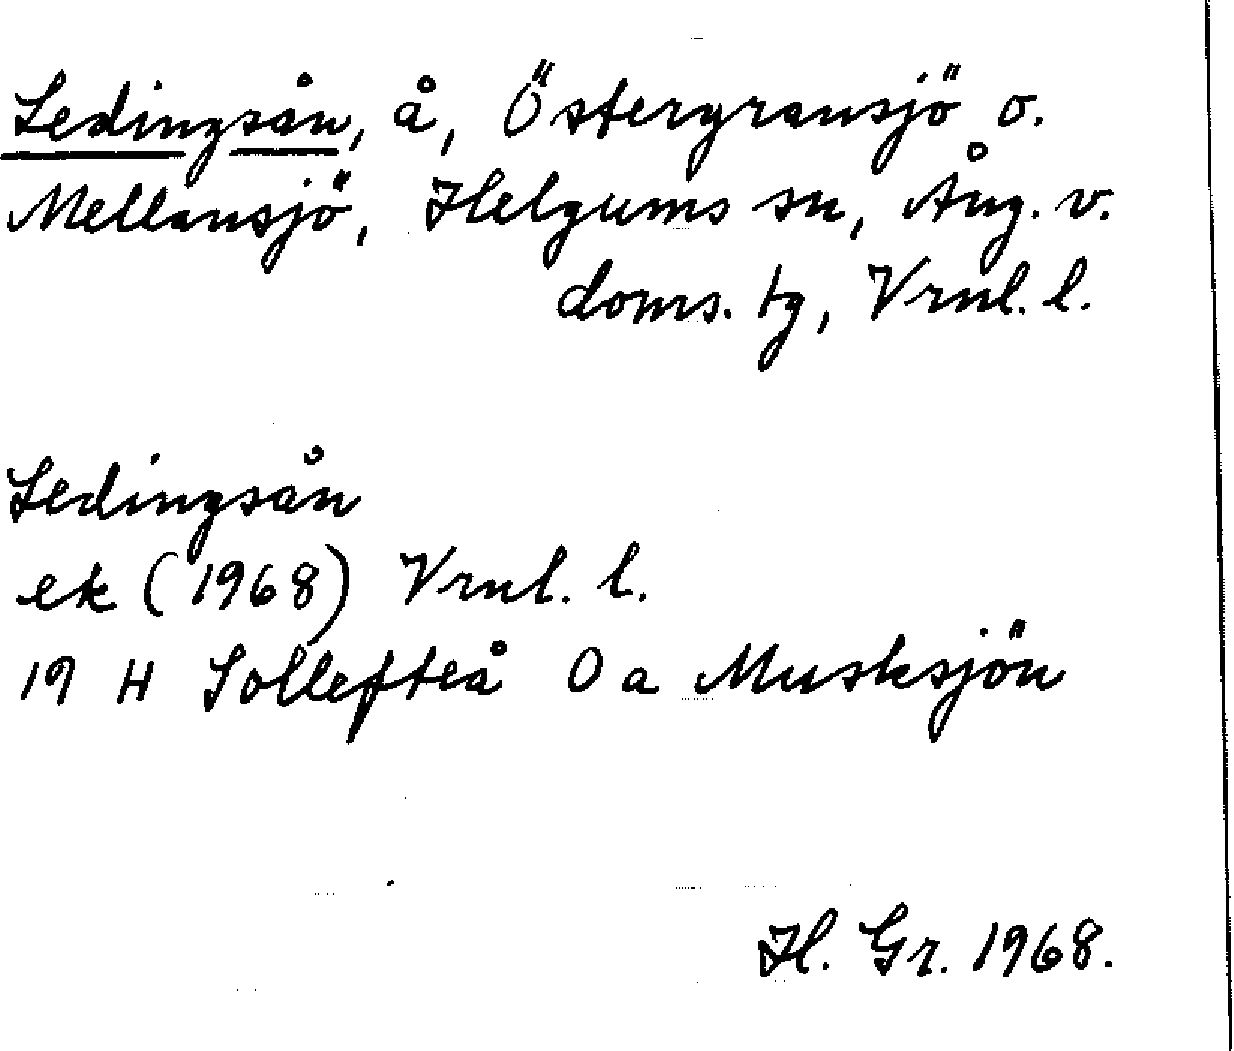 Ledingsån, å, Östergransjö o.
Mellansjö, Helgums sn, Ång. v.
doms. tg, Vrnl. l.
Ledingsån
ek (1968) Vrnl. l.
19 H Sollefteå 0 a Musksjön
H. Gr. 1968.